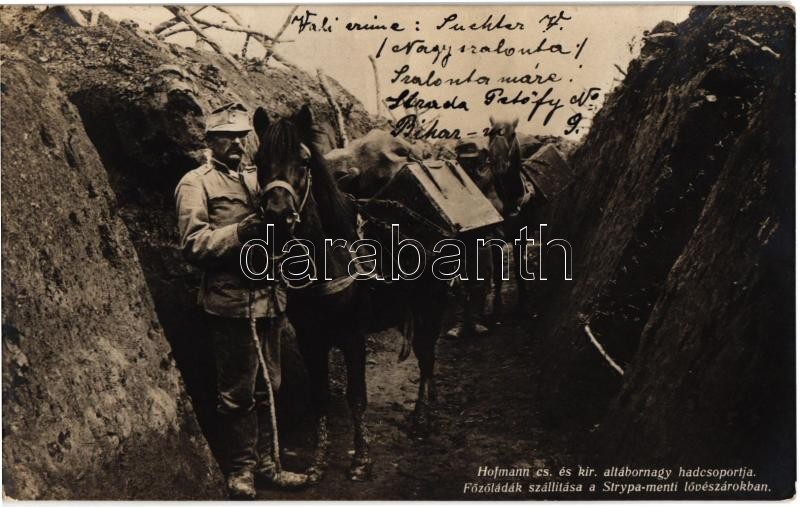 Vali címe: Suchter V.
/Nagyszalonta/
Szalonta máre
Strada Petőfy No
Bihar-m 9.
darabanth
Hofmann cs. és kir. altábornagy hadcsoportja.
Főzőládák szállitása a Strypa-menti lővészárokban.